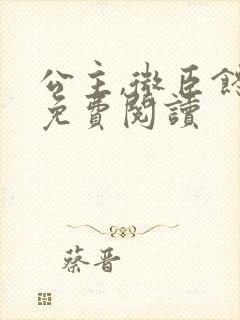 公主,微臣
免費閱讀
蔡晋